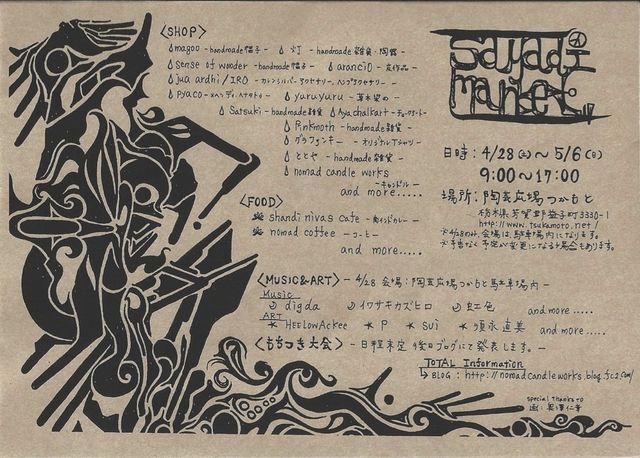 <SHOP>
magoo -handmade帽子- 灯 -handmade雑貨・陶器-
sense of wonder -handmade帽子- aranciO -皮作品-
jua ardhi / IRO -カレンシルバーアクセサリー、ヘンプアクセサリー-
Pyaco -メヘンディ、ヘナタトゥ- yuruyuru -草木染め-
Satsuki -handmade雑貨- Ayachalkart -チョークアート-
Pinkmoth -handmade雑貨-
グラフィンキー -オリジナルTシャツ-
ととや -handmade雑貨-
nomad candle works
-キャンドル-
and more.....
<FOOD>
shandi nivas cafe -南インドカレー-
nomad coffee -コーヒー-
and more.....
<MUSIC&ART> -4/28 会場:陶芸広場つかもと駐車場内-
Music
digda イワサキカズヒロ 虹色 and more.....
ART
* HEELowAckee * P * sui * 須永直美 and more.....
<もちつき大会> -日程未定 後日ブログにて発表します。-
TOTAL Information
BLOG : http://nomadcandleworks.blog.fc2.com/
special thanks to
market
日時:4/28(土)～5/6(日)
9:00～17:00
場所:陶芸広場つかもと
栃木県芳賀郡益子町3330-1
http://www.tsukamoto.net/
※4/28のみ、会場は駐車場内になります。
※予告なく予定が変更になる場合もあります。